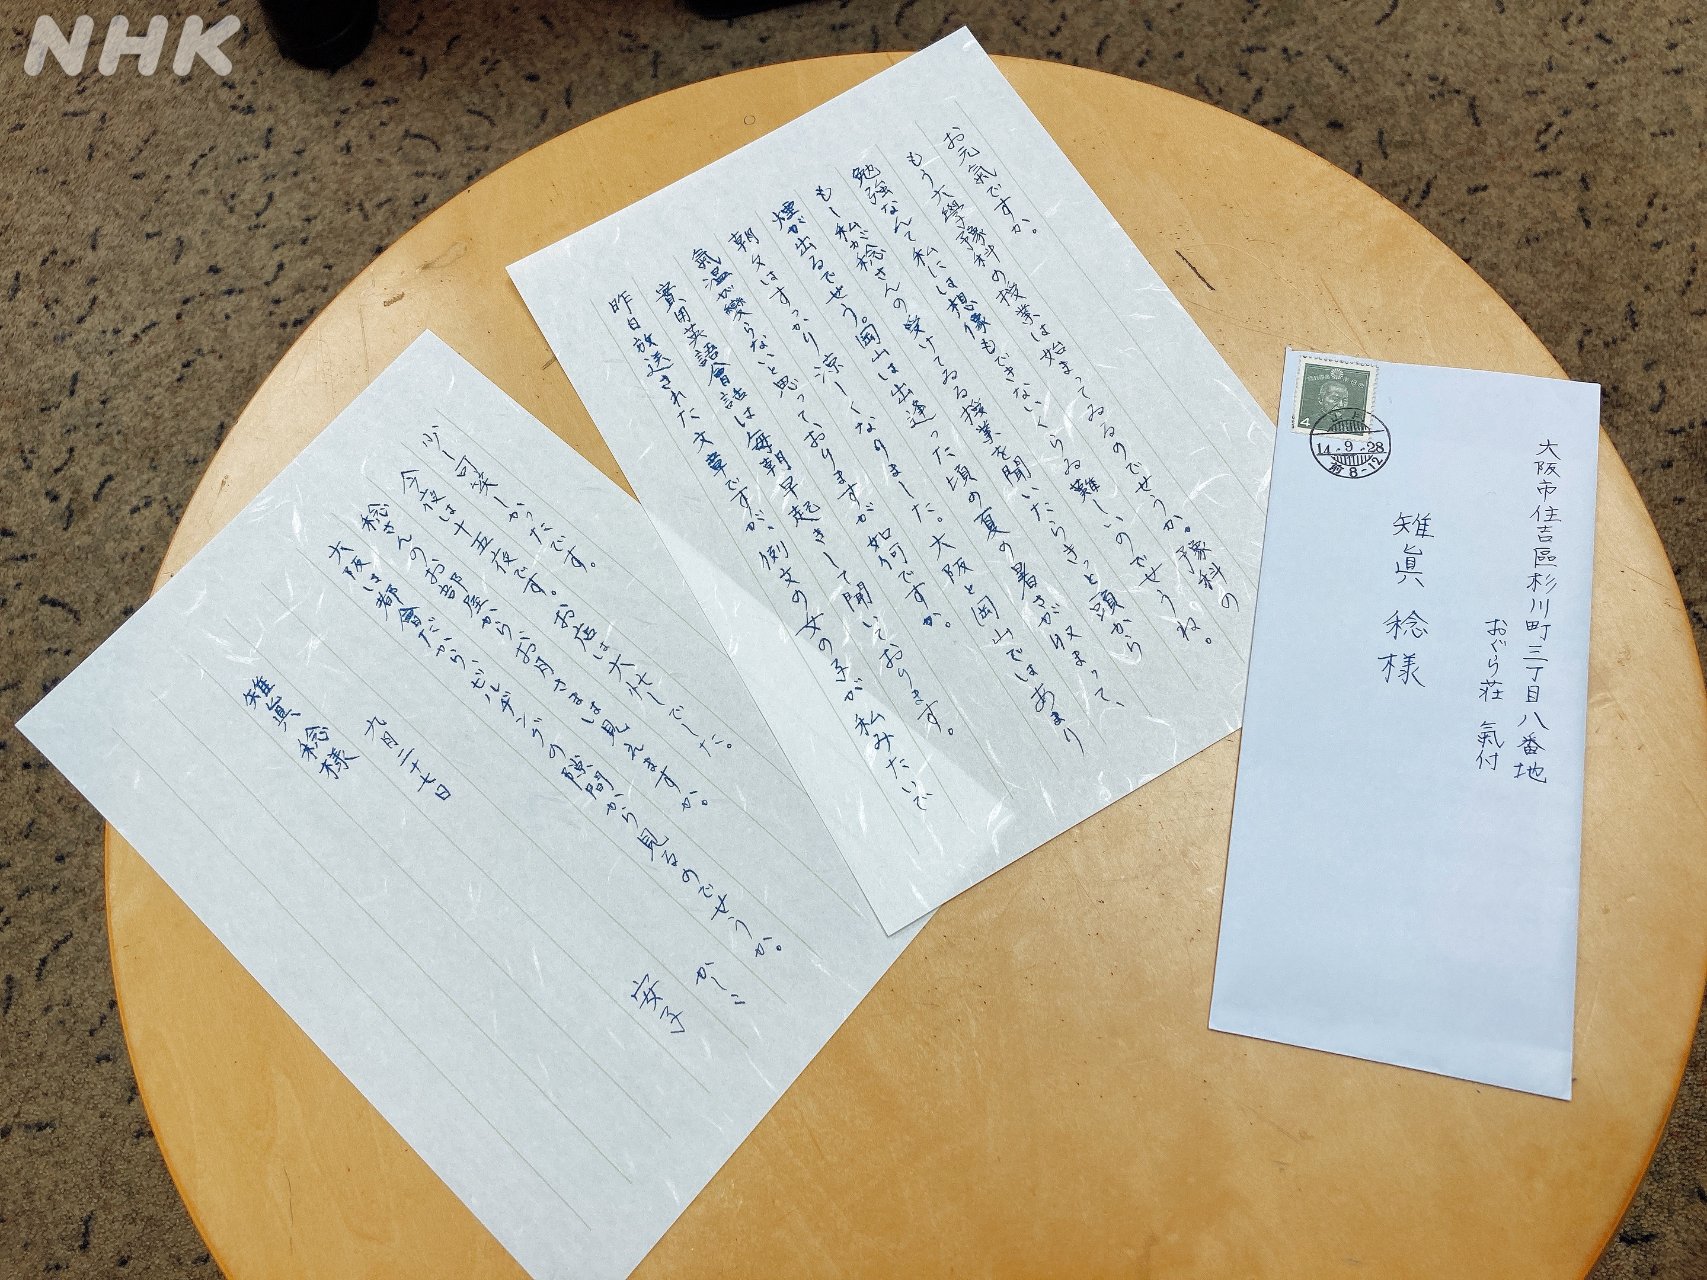 NHK
お元氣ですか。
もう大學豫科の授業は始まってゐるのでせうか。豫科の
勉強なんて私には想像もできないくらゐ難しいのでせうね。
もし私が稔さんの受けてゐる授業を聞いたらきっと頭から
煙が出るでせう。岡山は出逢った頃の夏の暑さが収まって、
朝夕はすっかり涼しくなりました。大阪と岡山ではあまり
氣温が變らないと思っておりますが如何ですか。
實用英語會話は毎朝早起きして聞いております。
昨日放送された文章ですが、例文の女の子が私みたいで
少し可笑しかったです。
今夜は十五夜です。お店は大忙しでした。
稔さんのお部屋からお月さまは見えますか。
大阪は都會だから、ビルヂングの隙間から見るのでせうか。
かしこ
九月二十七日
安子
雉眞稔様
4
14-9-28
前8-12
大阪市住吉區杉川町三丁目八番地
おぐら荘 氣付
雉眞稔様